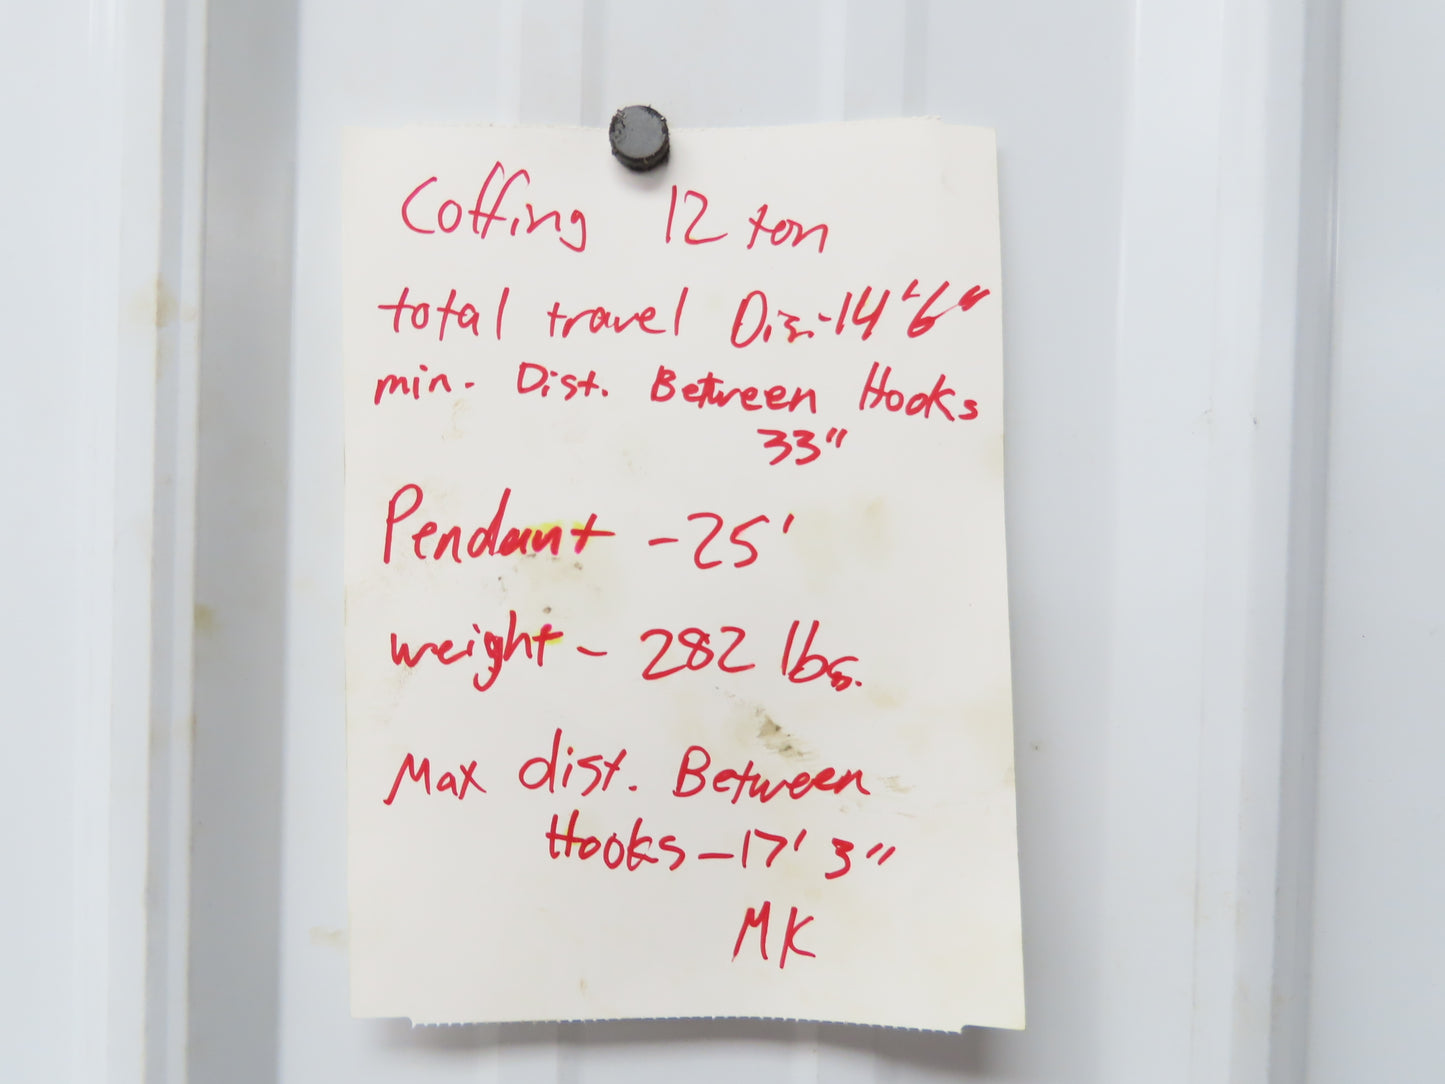 Coffing 12 ton
total travel Dis.-14'6"
min. Dist. Between Hooks
33"
Pendant -25'
weight - 282 lbs.
Max dist. Between
Hooks-17' 3"
MK